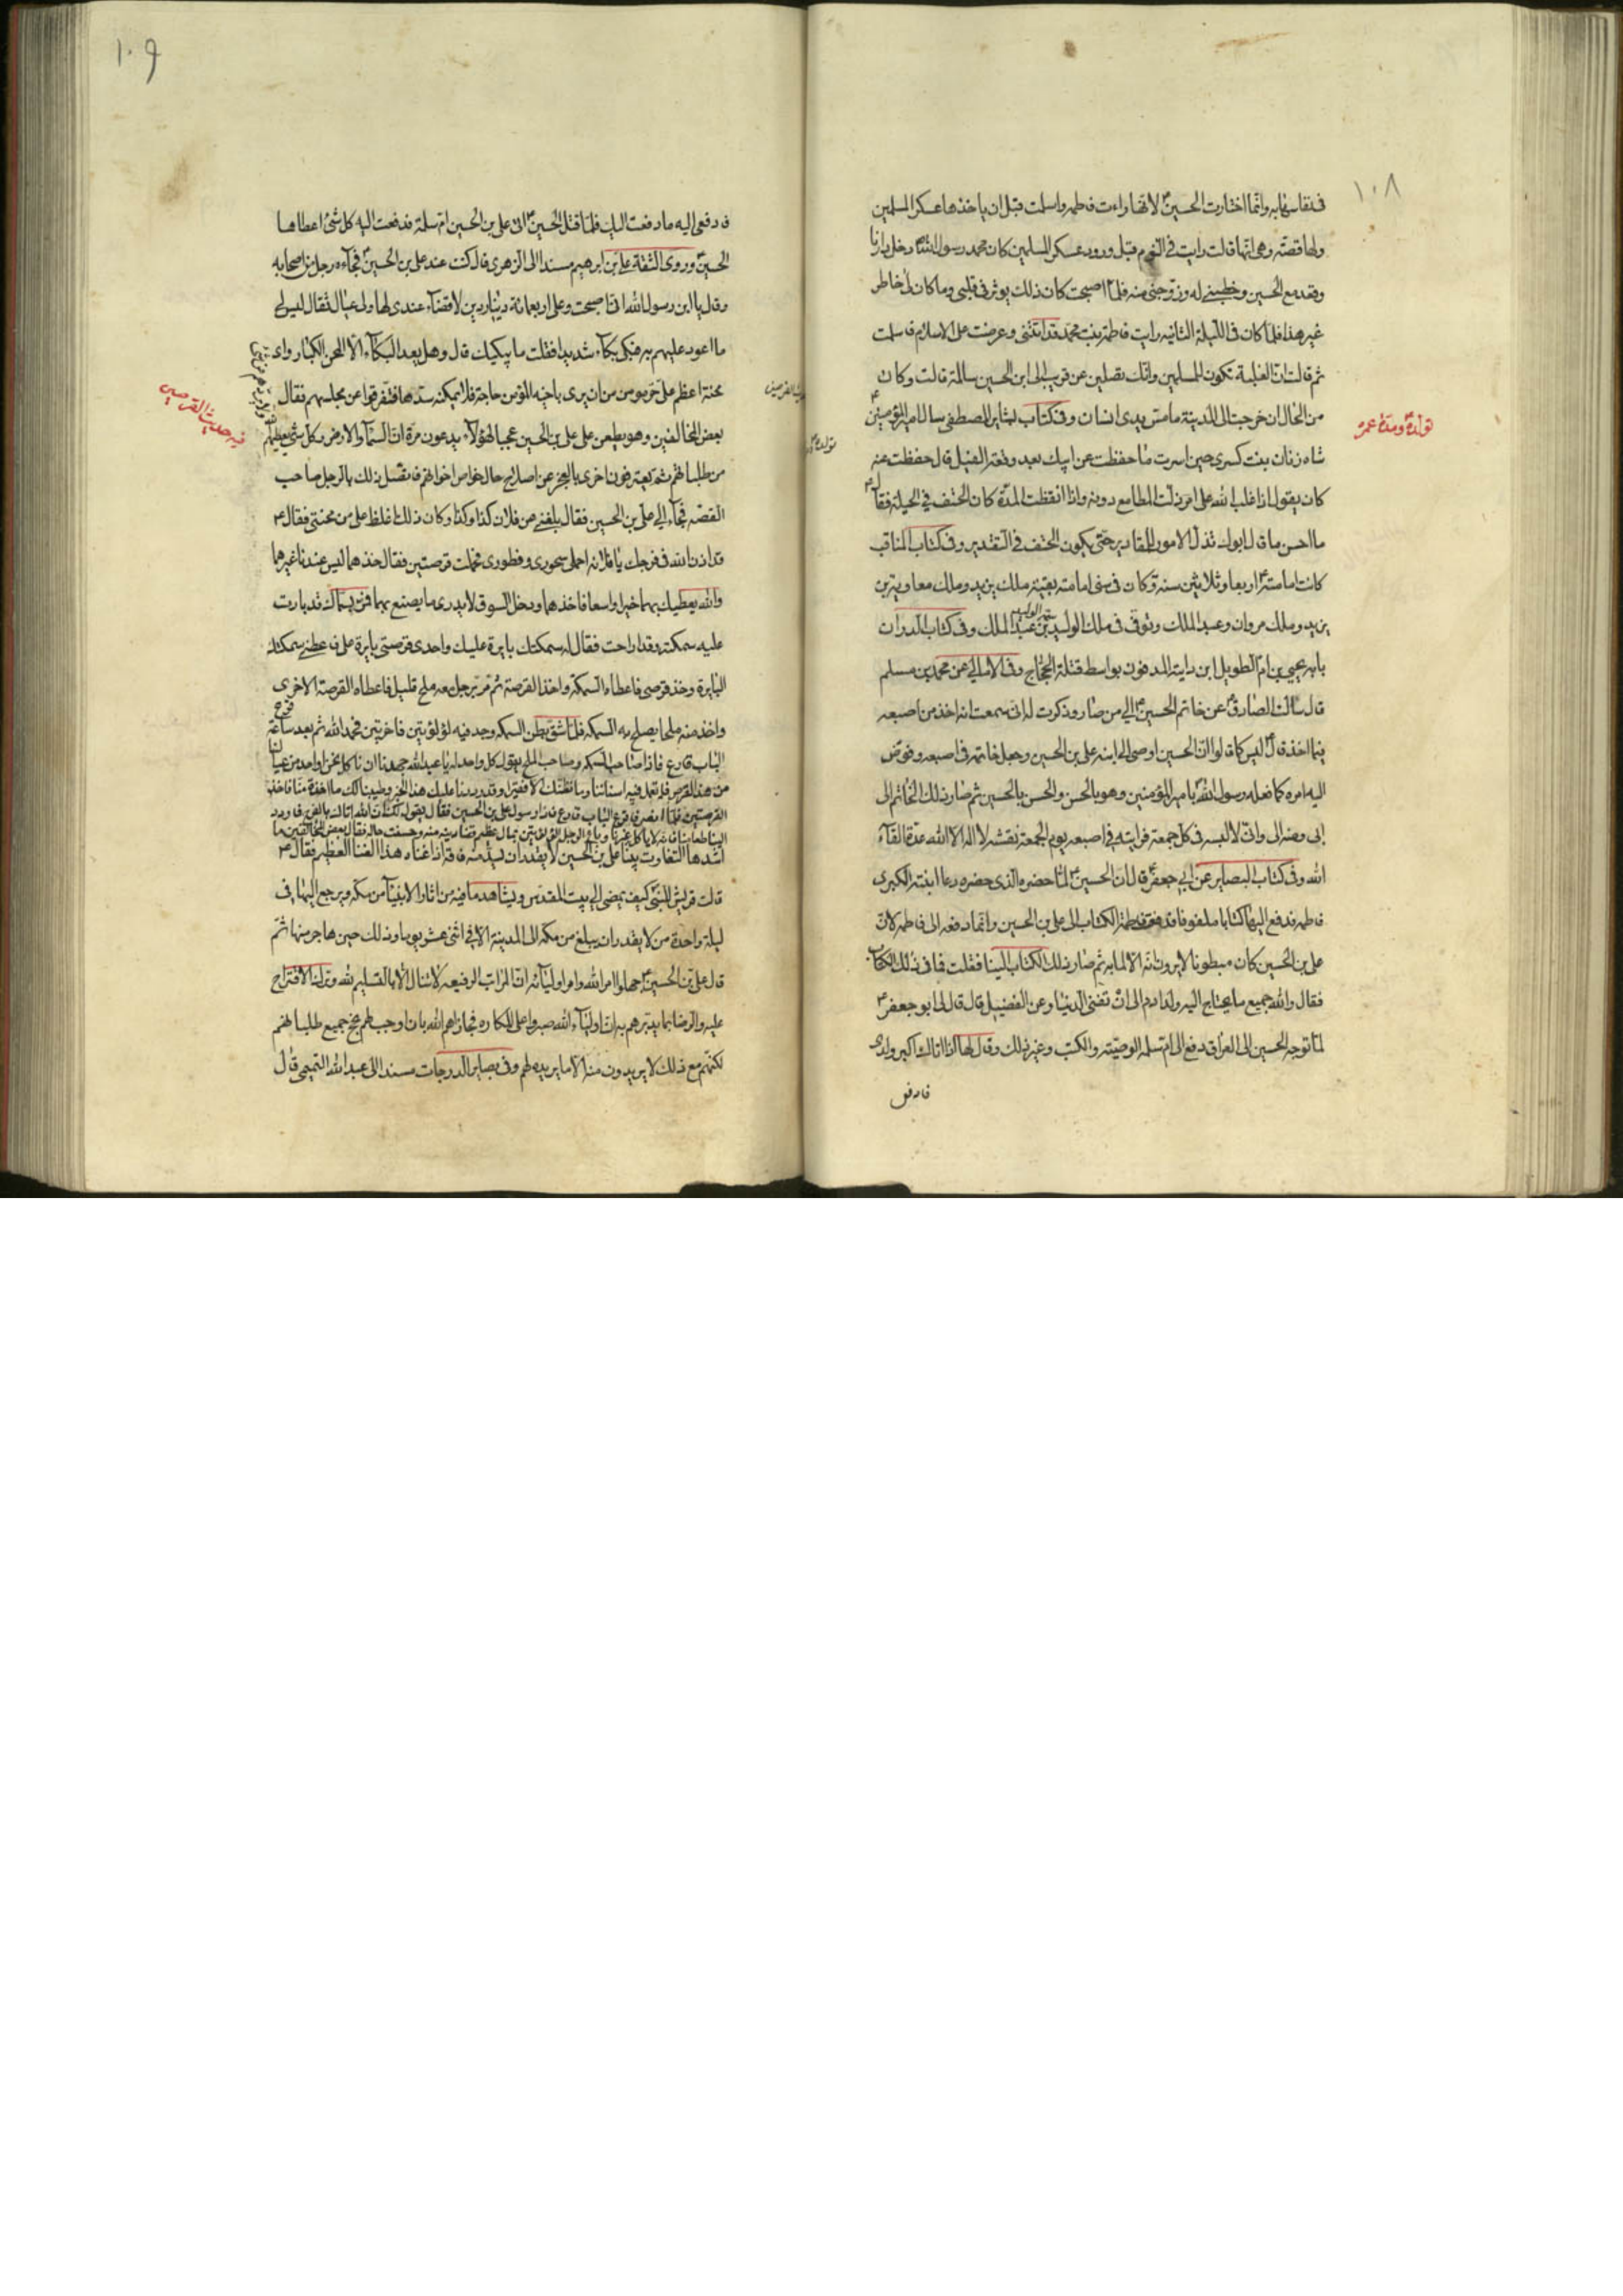 ١٠٨
فدنقا سهٰا به وانّما اختارت الحسينؑ لانها راءت فاطمه واسلمت قبل ان ياخذها عسكر المسلمين
ولها قصّته وهى انّها قالت رايت فى النّوم قبل ورود عسكر المسلمين كان محمد رسول اللهؐ دخل دارنا
وقعد مع الحسين وخطبنى له وزوّجنى منه فلمّا اصبحت كان ذلك يوثر فى قلبى وما كان لى خاطر
غير هذا فلما كان فى اللّيلة الثانيه رايت فاطمة بنت محمد قد اتتنى وعرضت على الاسلام فاسلمت
ثم قالت انّ الغلبة تكون للمسلمين وانّك تصلين عن قريب الى ابنى الحسين سالمة قالت وكان
من الحال ان خرجت الى المدينة ما مسّ يدى انسان وفى كتاب بشاير المصطفى سال امير المؤمنينؑ
تولدهؑ ومدة عمره
شاه زنان بنت كسرى حين اسرت ما حفظت عن ابيك بعد وقعة الفيل قال حفظت عنه
كان يقول اذا غلب الله على امر ذلّت المطامع دونه واذا انقضت المدّة كان الحتف فى الحيلة فقالؑ
ما احسن ما قال ابوك تذلّ الامور للمقادير حتّى يكون الحتف فى التقدير وفى كتاب المناقب
كانت امامتهؑ اربعا وثلاثين سنة وكان فى سنى امامته بقيّة ملك يزيد وملك معاوية بن
يزيد وملك مروان وعبد الملك وتوفّى فى ملك الوليد بن عبد الملك وفى كتاب الدر ان
بابه يحيى بن امّ الطويل ابن داية المدفون بواسط قتله الحجّاج وفى الامالى عن محمد بن مسلم
قال سالت الصادقؑ عن خاتم الحسينؑ الى من صار وذكرت له انى سمعت انه اخذ من اصبعه
فيما اخذ قالؑ ليس كما قالوا انّ الحسين اوصى الى ابنه على بن الحسين وجعل خاتمه فى اصبعه وفوّض
اليه امره كما فعله رسول اللهؐ بامير المؤمنين وهو بالحسن والحسن بالحسين ثم صار ذلك الخاتم الى
ابى ومنه الى وانّى لالبسه فى كلّ جمعة فرايته فى اصبعه يوم الجمعة نقشه لا اله الا الله عدّة للقآء
الله وفى كتاب البصاير عن ابى جعفرؑ قال ان الحسينؑ لمّا حضره الذى حضره دعا ابنته الكبرى
فاطمه فدفع اليها كتابا ملفوفا فدفعت فاطمة الكتاب الى على بن الحسين وانّما دفعه الى فاطمه لانّ
على بن الحسين كان مبطونا لا يرون انّه الّا لما به ثم صار ذلك الكتاب الينا فقلت فما فى ذلك الكتاب
فقال والله جميع ما يحتاج اليه ولد ادم الى ان تفنى الدنيا وعن الفضيل قال قال لى ابو جعفرؑ
لمّا توجه الحسين الى العراق دفع الى ام سلمه الوصيّة والكتب وغير ذلك وقال لها اذا اتاك اكبر ولدى
فادفعى
١٠٩
فادفعى اليه ما دفعت اليك فلمّا قتل الحسينؑ اتى على بن الحسين ام سلمة فدفعت اليه كل شئ اعطاها
الحسينؑ وروى الثقة على بن ابرهيم مسندا الى الزهرى قال كنت عند على بن الحسينؑ فجآءه رجل من اصحابه
وقال يا ابن رسول الله انّى اصبحت وعلى اربعمائة دينار دين لا قضآء عندى لها ولى عيال ثقال ليس لى
ما اعود عليهم به فبكى بكآء شديدا فقلت ما يبكيك قال وهل يعد البكآء الّا للمحن الكبار واى
محنة اعظم على حرّ مومن من ان يرى باخيه المؤمن حاجة فلا يمكنه سدّها فتفرقوا عن مجلسهم فقال
فيه حديث القرصين
بعض المخالفين وهو يطعن على على بن الحسين عجبا لهؤلآء يدعون مرّة انّ السّمآء والارض وكل شئ يطيعهم
من طلباتهم ثم يعترفون اخرى بالعجز عن اصلاح حال خواص اخوانهم فاتّصل ذلك بالرجل صاحب
القصّه فجآء الى على بن الحسين فقال بلغنى عن فلان كذا وكذا وكان ذلك اغلظ على من محنتى فقالؑ
قد اذن الله فى فرجك يا فلانه احملى سحورى وفطورى فحملت قرصتين فقال خذهما ليس عندنا غيرهما
والله يعطيك بهما خيرا واسعا فاخذهما ودخل السوق لا يدرى ما يصنع بهما فمرّ بسمّاك قد بارت
عليه سمكته وقد اراحت فقال له سمكتك بايرة عليك واحدى قرصتى بايرة على فاعطنى سمكتك
البايرة وخذ قرصى فاعطاه السمكة واخذ القرصة ثم مر برجل معه ملح قليل فاعطاه القرصة الاخرى
واخذ منه ملحا يصلح به السمكة فلمّا شق بطن السمكه وجد فيه لؤلؤتين فاخرتين فحمد الله ثم بعد ساعة قرع
الباب قارع فاذا صاحب السمكه وصاحب الملح يقول كل واحد له يا عبد الله جهدنا ان ناكل نحن او احد من عيالنا
من هذا القرص فلا تعمل فيه اسناننا وما نظنّك الّا فقيرا وقد رددنا عليك هذا الخبز وطيبنا لك ما اخذته منّا فاخذ
القرصتين فلمّا انصرفا قرع الباب قارع فاذا رسول على بن الحسين فقال يقول لك انّ الله اتاك بالفرج فاردد
الينا طعامنا فانه لا ياكله غيرنا وباع الرجل اللؤلؤتين بمال عظيم قضا دينه منه وحسنت حاله فقال بعض المخالفين ما
اشدّ هذا التفاوت بينا على بن الحسين لا يقدر ان يسدّ منه فاقة اذ اغناه هذا الغنا العظيم فقالؑ
قالت قريش للنبىّ كيف يمضى الى بيت المقدس ويشاهد ما فيه من اثار الانبيآء من مكّه ويرجع اليها فى
ليلة واحدة من لا يقدر ان يبلغ من مكه الى المدينة الّا فى اثنى عشر يوما وذلك حين هاجر منها ثمّ
قال على بن الحسينؑ جهلوا امر الله وامر اوليآئه انّ المراتب الرفيعه لا تنال الّا بالتسليم لله وترك الاقتراح
عليه والرضا بما يدبّرهم به انّ اوليآء الله صبروا على المكاره فجازاهم الله بان اوجب لهم نجح جميع طلباتهم
لكنّهم مع ذلك لا يريدون منه الّا ما يريده لهم وفى بصاير الدرجات مسندا الى عبد الله التميمى قال